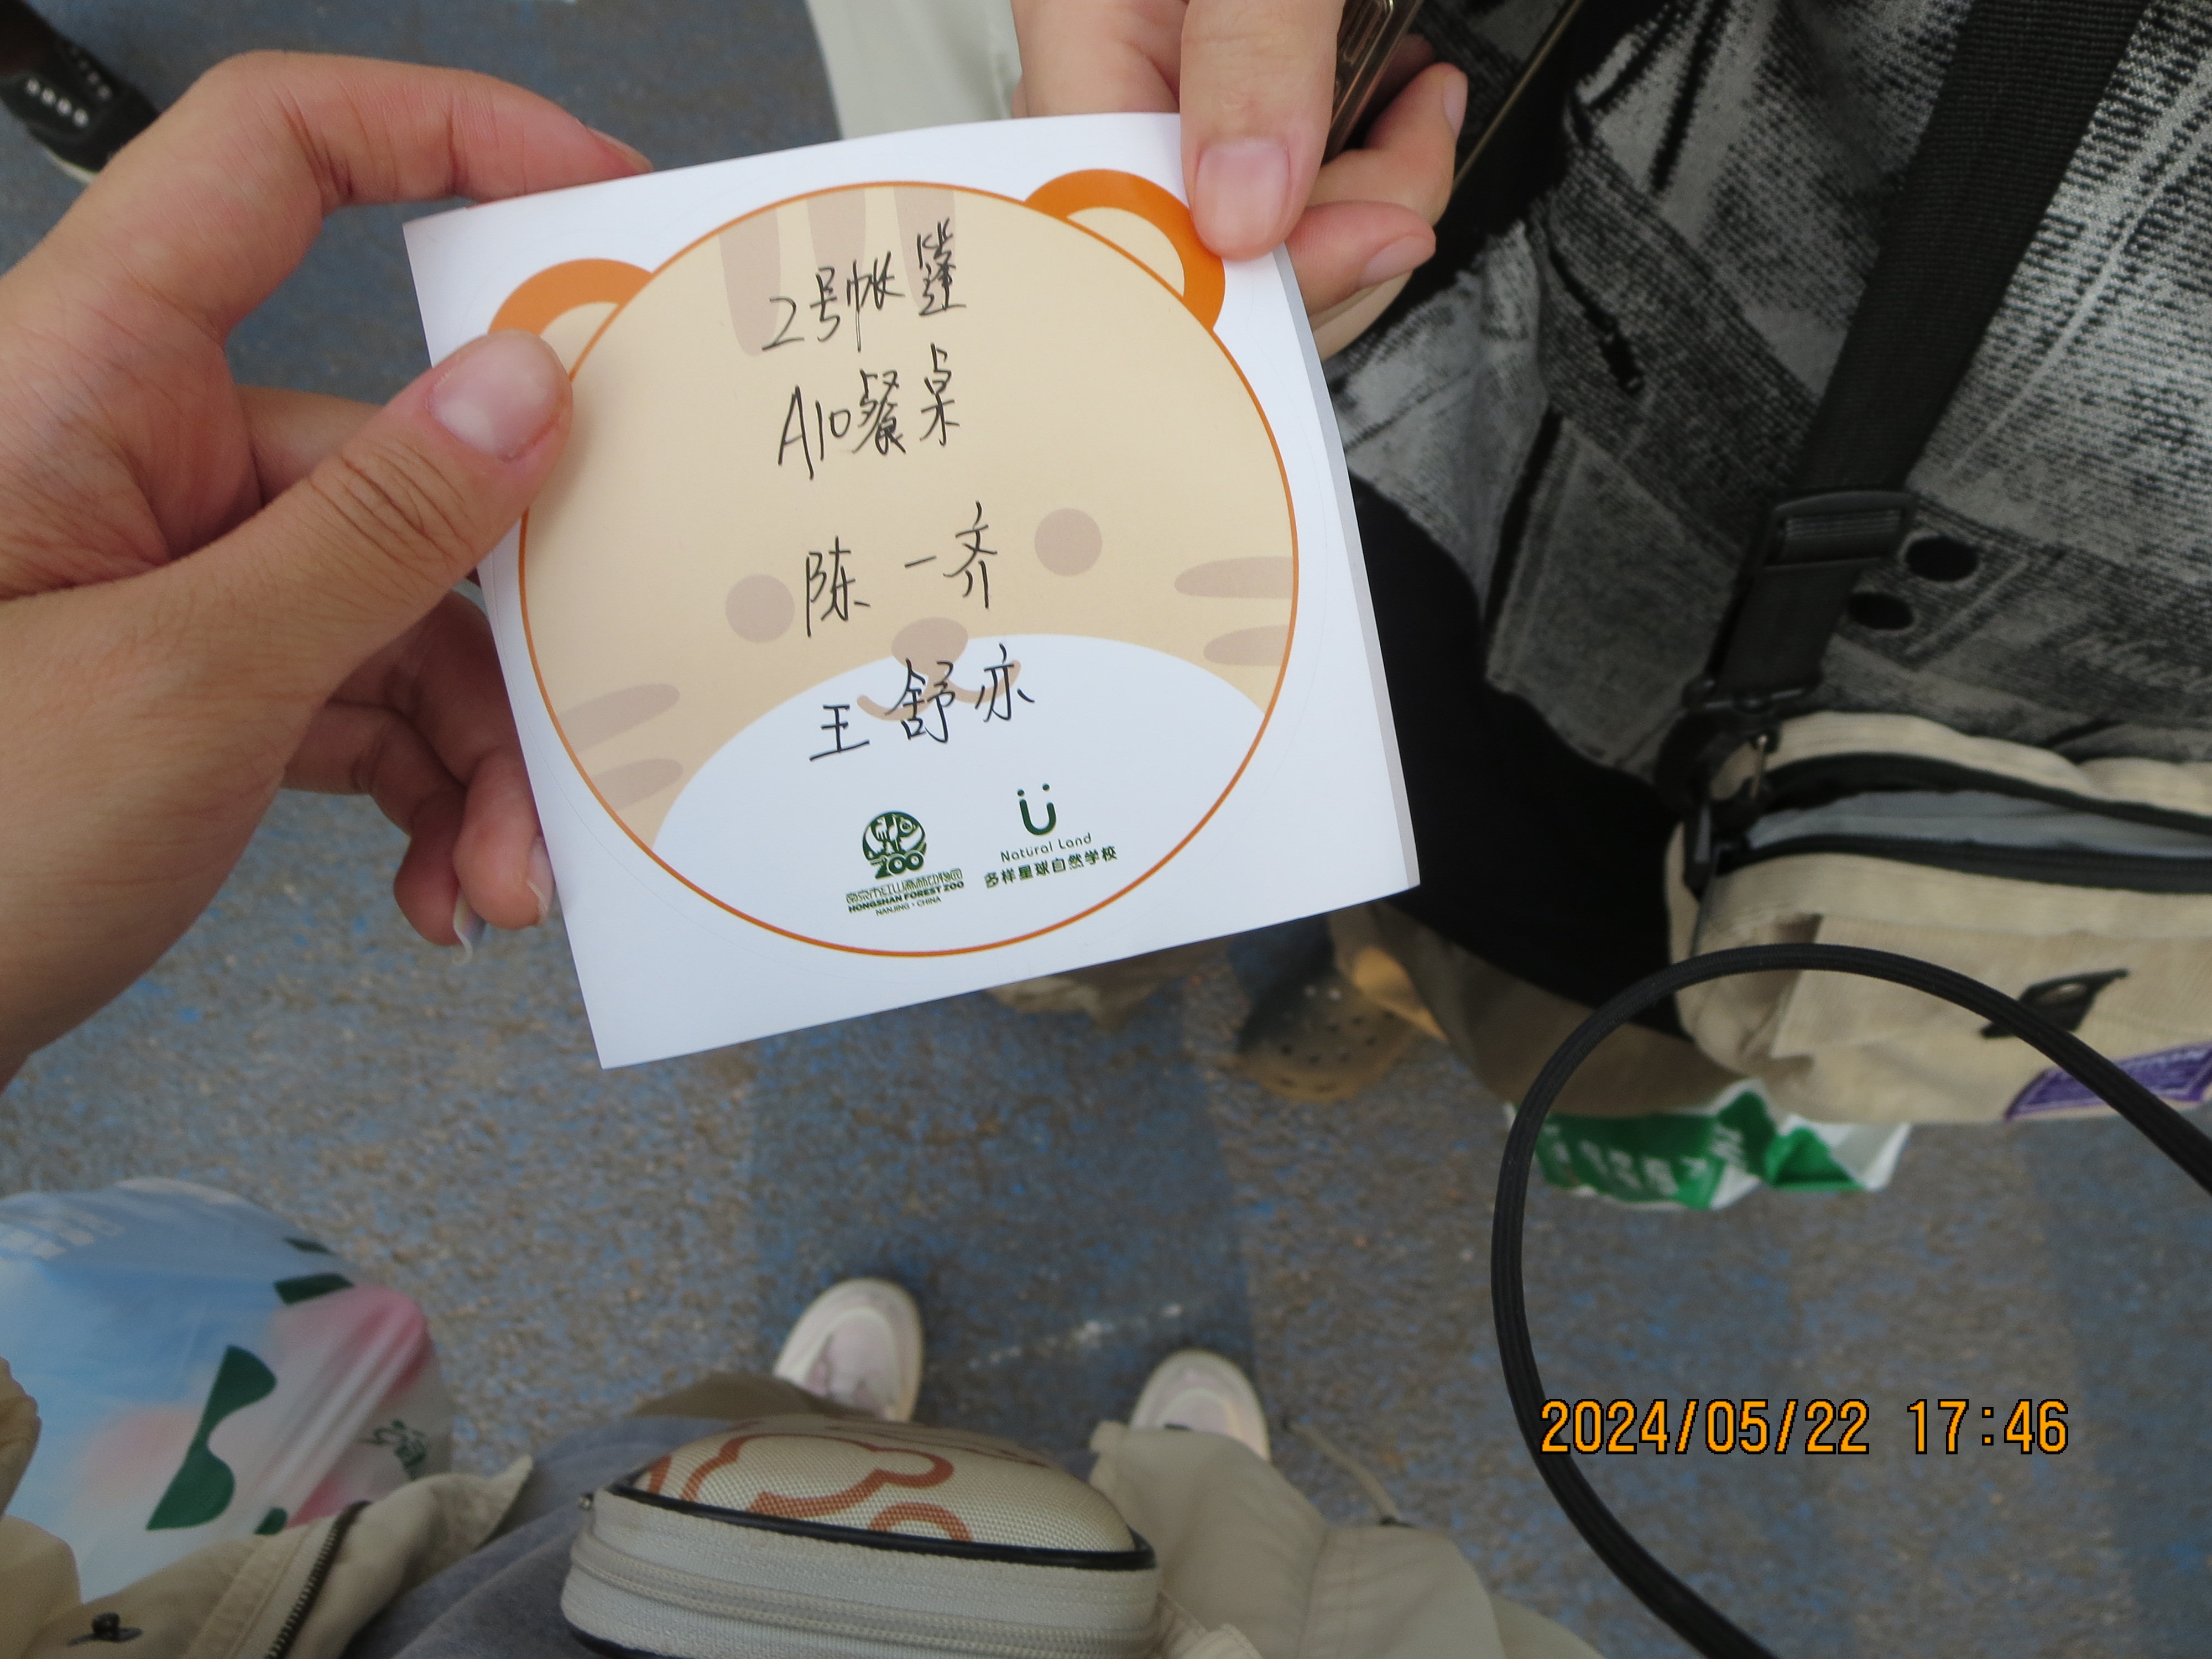 2号帐篷
A10餐桌
陈一齐
王舒亦
ZOO
南京市红山森林动物园
HONGSHAN FOREST ZOO
NANJING · CHINA
Natural Land
多样星球自然学校
2024/05/22 17:46